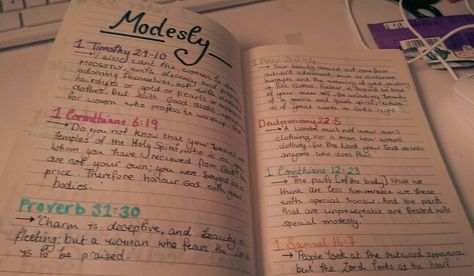 Modesty
1 Timothy 2:9-10
→ I also want the women to dress
modestly, with decency and
adorning themselves, not with elaborate
hairstyles or gold or pearls or expensive
clothes, but with good deeds, appropriate
for women who profess to worship God
1 Corinthians 6:19
→ Do you not know that your bodies are
temples of the Holy Spirit, who is in you,
whom you have received from God? You
are not your own; you were bought at a
price. Therefore honour God with your
bodies.
Proverb 31:30
→ Charm is deceptive, and beauty is
fleeting; but a woman who fears the Lord
is to be praised.
1 Peter 3:3-4
→ Your beauty should not come from
outward adornment, such as elaborate
hairstyles and the wearing of gold jewelry
or fine clothes. Rather, it should be that
of your inner self, the unfading beauty
of a gentle and quiet spirit, which
is of great worth in God's sight.
Deuteronomy 22:5
→ A woman must not wear men's
clothing, nor a man wear women's
clothing, for the Lord your God detests
anyone who does this.
1 Corinthians 12:23
→ The parts [of the body] that we
think are less honourable we treat
with special honour. And the parts
that are unpresentable are treated with
special modesty.
1 Samuel 16:7
→ People look at the outward appearance,
but the Lord looks at the heart.